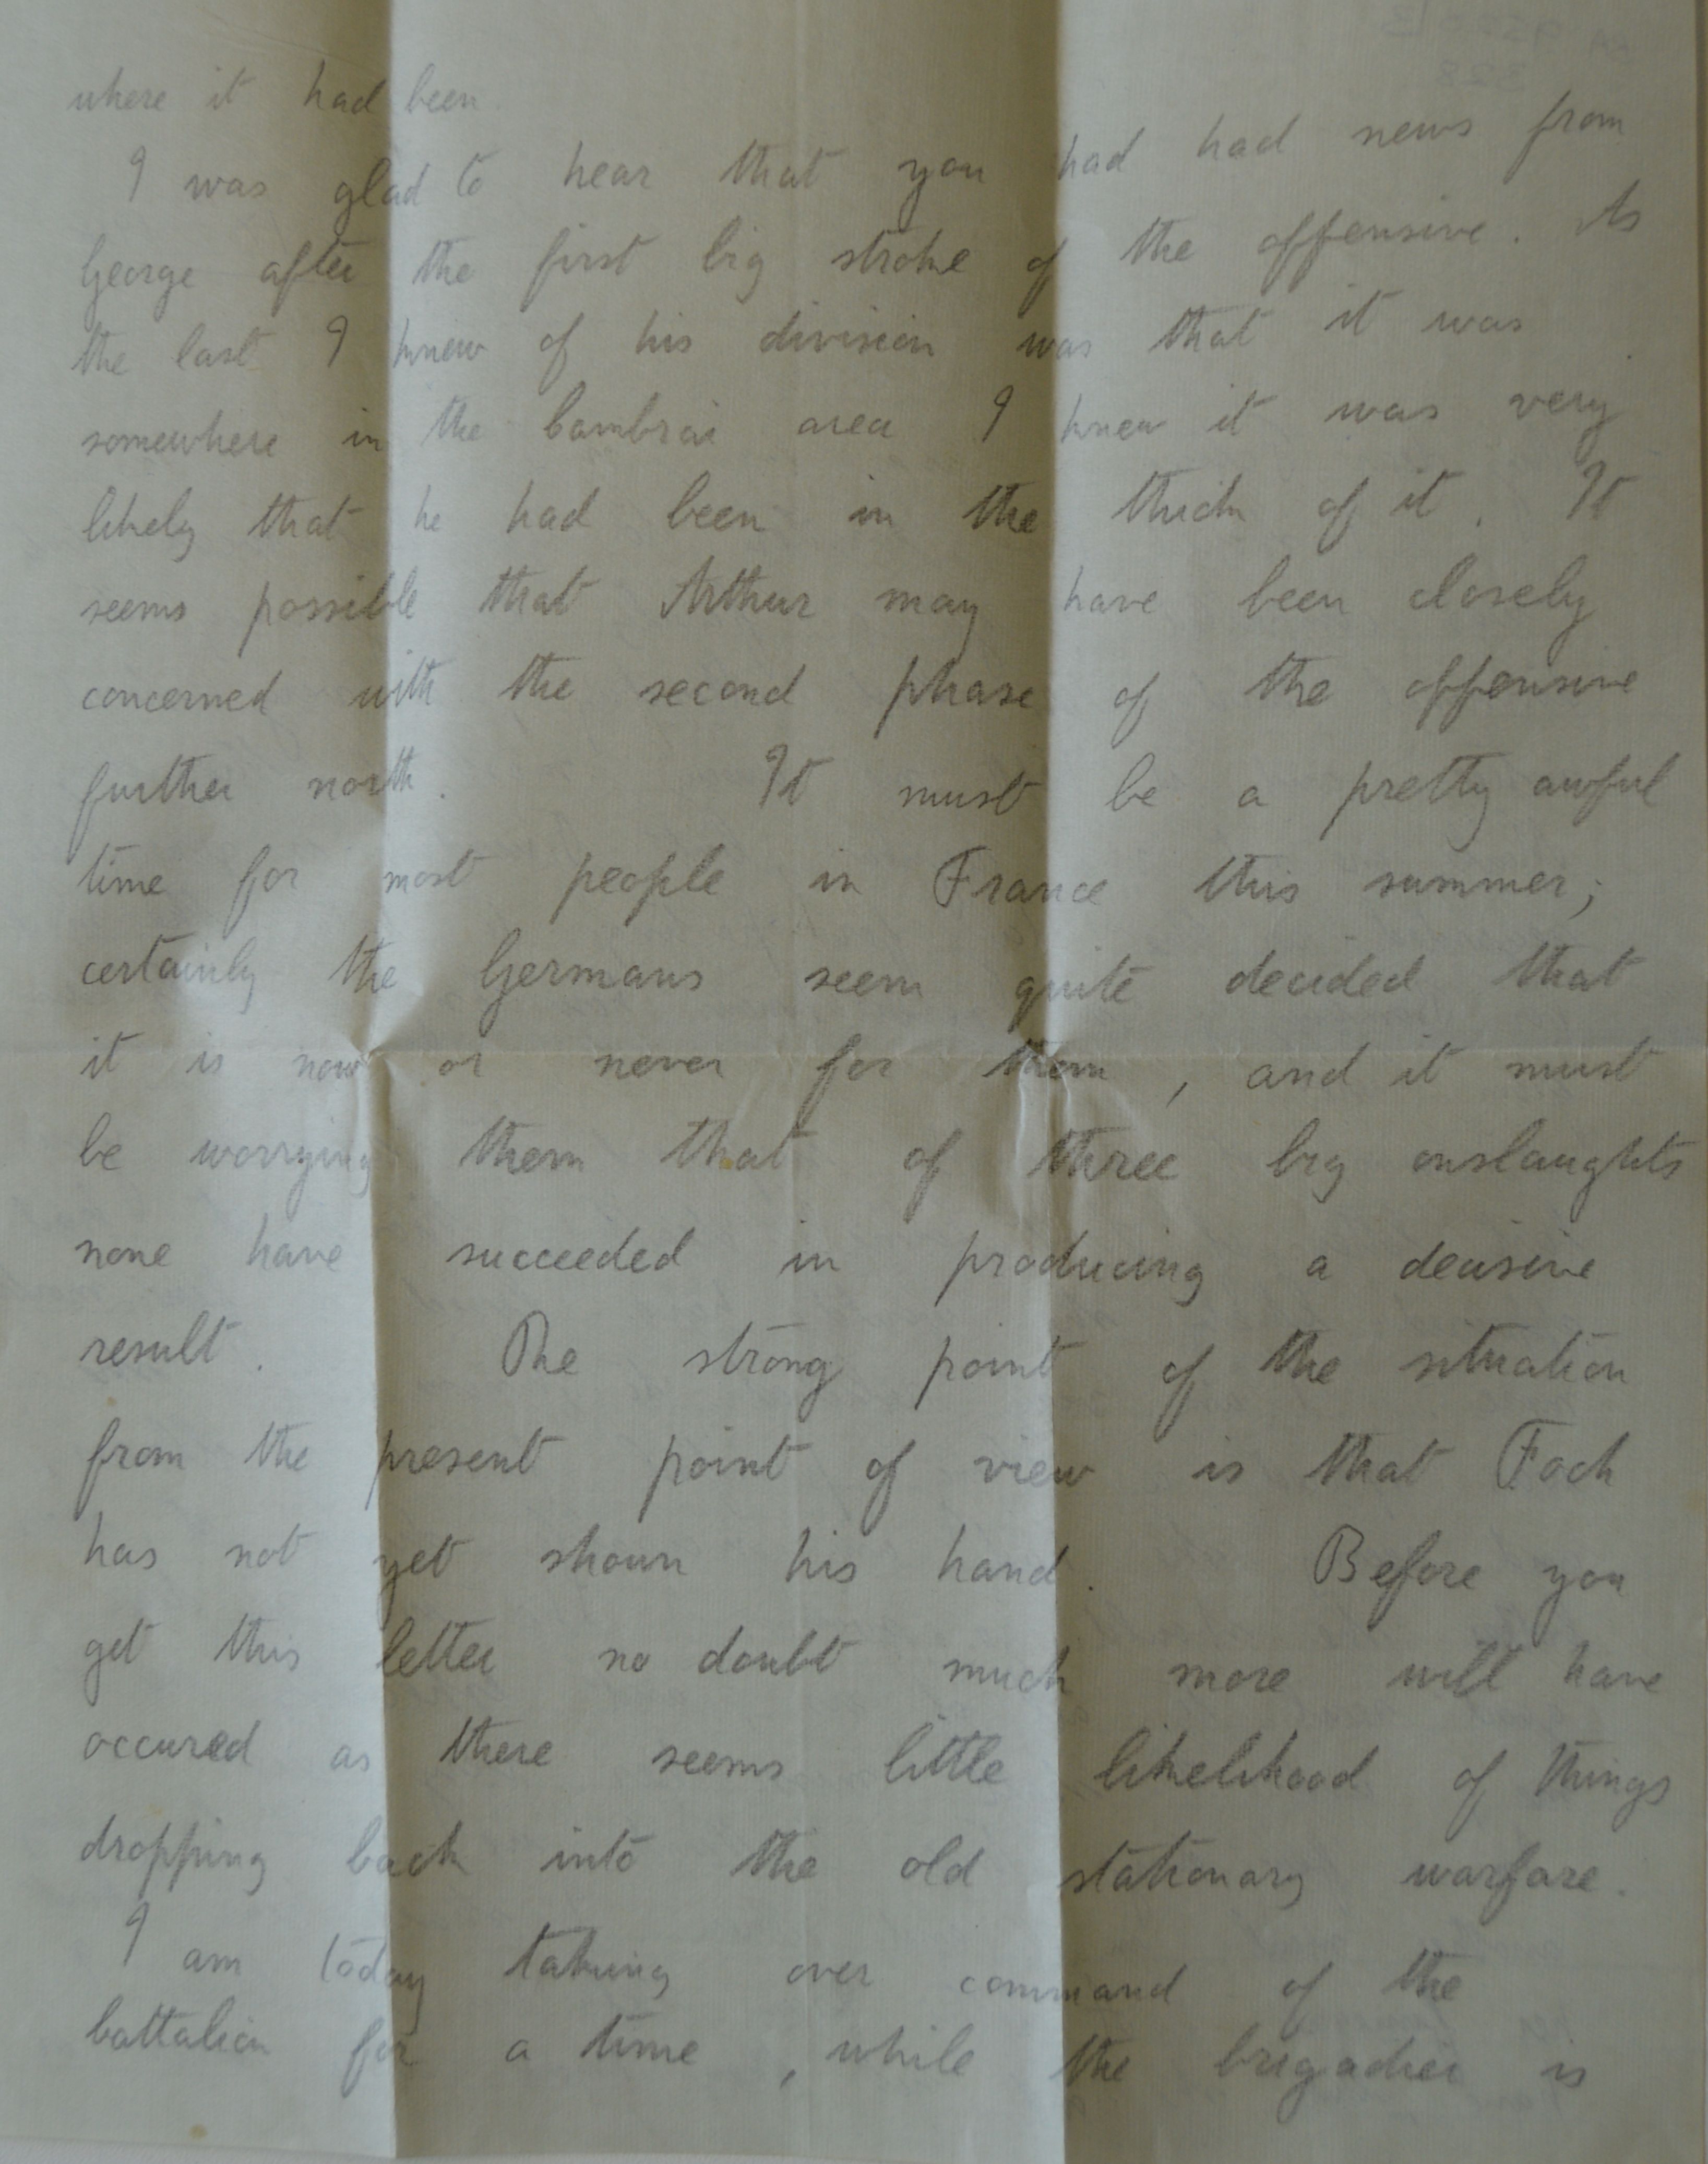 where it had been.
I was glad to hear that you had had news from
George after the first big stroke of the offensive. As
the last I knew of his division was that it was
somewhere in the Cambrai area I knew it was very
likely that he had been in the thick of it. It
seems possible that Arthur may have been closely
concerned with the second phase of the offensive
further north. It must be a pretty awful
time for most people in France this summer;
certainly the Germans seem quite decided that
it is now or never for them, and it must
be worrying them that of three big onslaughts
none have succeeded in producing a decisive
result. The strong point of the situation
from the present point of view is that Foch
has not yet shown his hand. Before you
get this letter no doubt much more will have
occured as there seems little likelihood of things
dropping back into the old stationary warfare.
I am today taking over command of the
battalion for a time, while the brigadier is